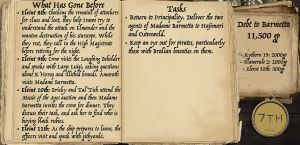 What Has Gone Before
• Eleint 8th: Checking the remains of attackers
for clues and loot, they help Inure try to
understand the attack on Ilmander and the
wanton destruction of his steersope. While
they rest, they call in the High Magistrate
before retiring for the night.
• Eleint 9th: Crew visits the Laughing Beholder
and speaks with Large Luigi, asking questions
about K'Horoq and illithid brands. Amarath
visits Madame Barnetta.
• Eleint 10th: Brickly and Tul'Tich attend the
Music of the Ages auction and then Madame
Barnetta invites the crew for dinner. They
discuss their task, and ask her to find who is
buying black rubies.
• Eleint 11th: As the ship prepares to leave, the
officers visit and speak with githyanki.
Tasks
• Return to Principality. Deliver the two
agents of Madame Barnetta to Hajimari
and Ostenwold.
• Keep an eye out for pirates, particularly
those with Bralian bounties on them.
Debt to Barnetta
11,500 gp
- Kythorn 19: 2000g
- Flamerule 2: 2000g
- Eleint 10th: 500g
7TH